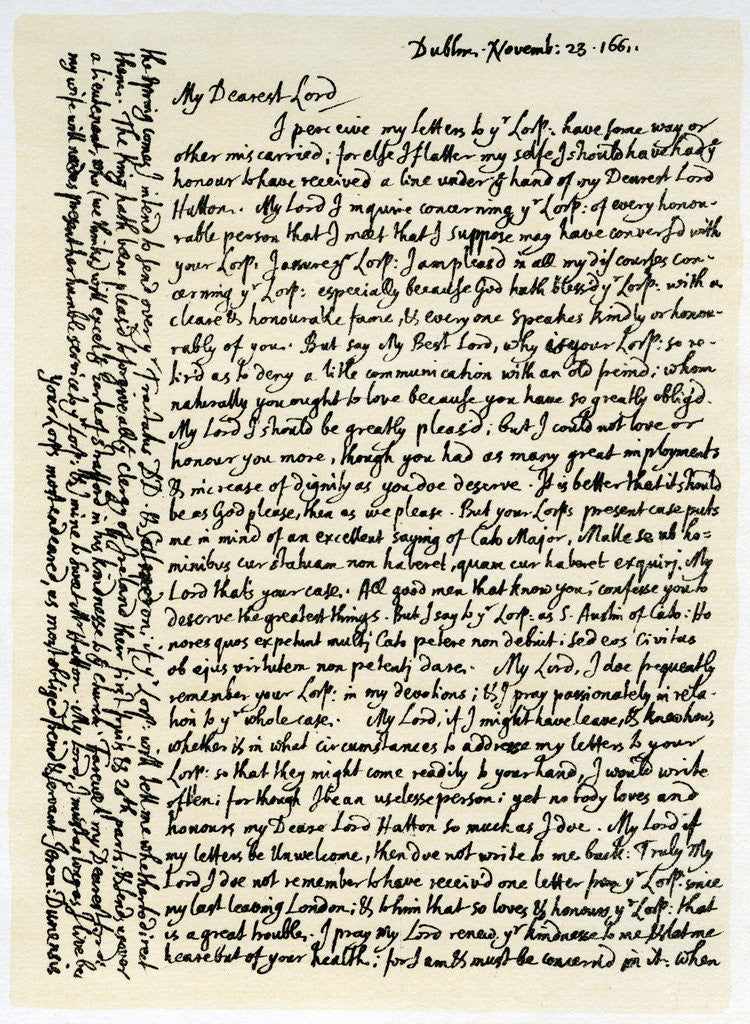 Dublin. Novemb: 23. 1661.
My Dearest Lord
I perceive my letters to yr Lorp: have some way or
other miscarried; for else I flatter my selfe I should have had ye
honour to have received a line under ye hand of my Dearest Lord
Hatton. My Lord I inquire concerning yr Lorp: of every honou-
rable person that I meet that I suppose may have convers'd with
your Lorp. I assure yr Lorp: I am pleas'd in all my discourses con-
cerning yr Lorp: especially because God hath bless'd yr Lorp: with a
cleare & honourable fame, & every one speakes kindly or honou-
rably of you. But say My Best Lord, why is your Lorp: so re-
tir'd as to deny a little communication with an old freind; whom
naturally you ought to love because you have so greatly oblig'd.
My Lord I should be greatly pleas'd; but I could not love or
honour you more, though you had as many great imployments
& increase of dignity as you doe deserve. It is better that it should
be as God please, then as we please. But your Lorps present case puts
me in mind of an excellent saying of Cato Major, Malle se ab ho=
minibus cur statuam non haberet, quam cur haberet exquiri. My
Lord that's your case. All good men that know you, confesse you to
deserve the greatest things. But I say to yr Lorp: as S. Austin of Cato: Ho
nores quos expetunt multi Cato petere non debuit; sed eos Civitas
ob ejus virtutem non petenti dare. My Lord, I doe frequently
remember your Lorp: in my devotions; & I pray passionately in rela-
tion to yr whole case. My Lord, if I might have leave, & knew how,
whether & in what circumstances to addresse my letters to your
Lorp: so that they might come readily to your hand, I would write
often; for though I be an uselesse person; yet no body loves and
honours my Deare Lord Hatton so much as I doe. My Lord if
my letters be Unwelcome, then doe not write to me back: Truly My
Lord I doe not remember to have receiv'd one letter from yr Lorp: since
my last leaving London; & to him that so loves & honours yr Lorp: that
is a great trouble. I pray my Lord renew yr kindnesse to me & let me
heare but of your health; for I am & must be concern'd in it. When
the spring comes I intend to send over yr Tractatus DD. & if yr Lorp: will tell me whether to direct
them. The King hath beene pleas'd to forgive all ye clergy of Ireland their first fruits & 20th parts; & send us over
a Lieutenant, who (we thinke) will excell ye Earle of Strafford in his kindnesse to ye church. Farewell my Dearest Lord:
my wife will needs present her humble service to yr Lorp: & mine to sweet Mr Hatton. My Lord, I must as long as I live be
Your Lorps most endeared, as most obliged freind & servant Jerem: Dunensis